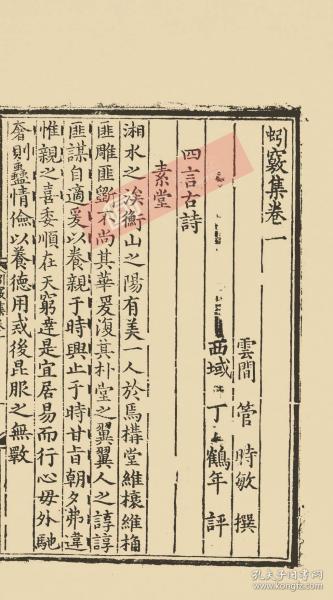 蚓竅集卷一
雲間 管 時敏 撰
西域 丁 鶴年 評
四言古詩
素堂
湘水之涘衡山之陽有美一人於焉搆堂維榱維桷
匪雕匪斵不尚其華爰復其朴堂之翼翼人之諄諄
匪謀自適爰以養親于時興止于時甘旨朝夕弗違
惟親之喜委順在天窮達是宜居易而行心毋外馳
奢則蠹情儉以養德用戒後昆服之無斁
孔夫子旧书网